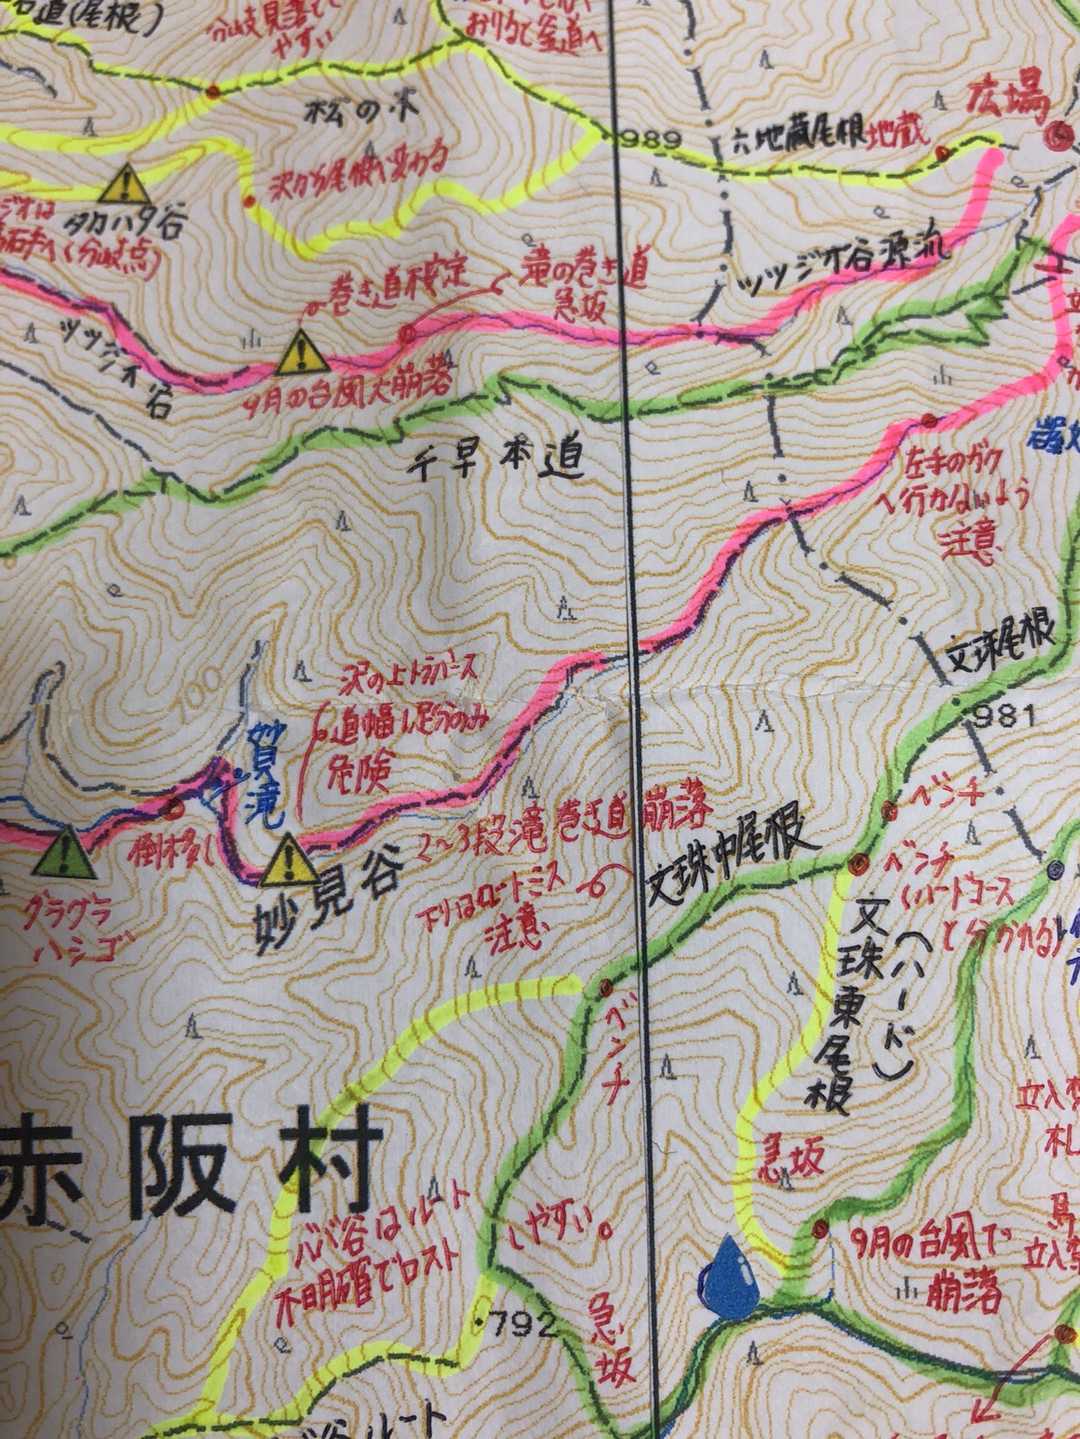 道(尾根)
分岐見落として
やすい
松の木
沢から尾根へ変わる
タカハタ谷
(分岐点)
989
六地蔵尾根
地蔵
広場
ツツジオ谷源流
巻き道不安定
滝の巻き道
急坂
ツツジオ谷
9月の台風大崩落
千早本道
左手のガケ
へ行かないよう
注意
文珠尾根
981
沢の上トラバース
道幅1足分のみ
危険
妙見滝
倒木多し
グラグラ
ハシゴ
妙見谷
2〜3段滝 巻き道 崩落
下りはロストミス
注意
文珠中尾根
ベンチ
ベンチ
(ハードコース
と分かれる)
文珠東尾根
(ハード)
ベンチ
赤阪村
急坂
ババ谷はルート
不明確でロスト
しやすい
792
急坂
9月の台風で
崩落
立入禁
札
ルート